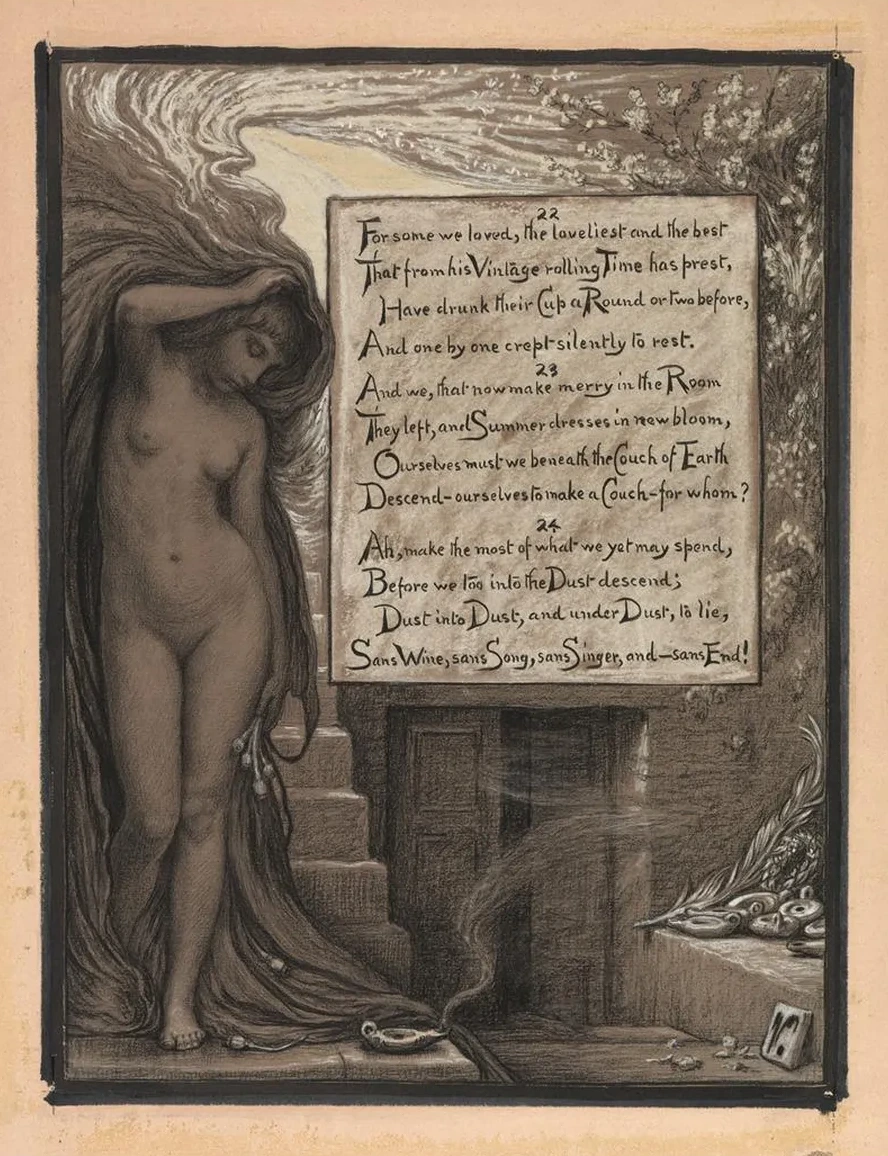 22
For some we loved, the loveliest and the best
That from his Vintage rolling Time has prest,
Have drunk their Cup a Round or two before,
And one by one crept silently to rest.
23
And we, that now make merry in the Room
They left, and Summer dresses in new bloom,
Ourselves must we beneath the Couch of Earth
Descend-ourselves to make a Couch-for whom?
24
Ah, make the most of what we yet may spend,
Before we too into the Dust descend;
Dust into Dust, and under Dust, to lie,
Sans Wine, sans Song, sans Singer, and-sans End!